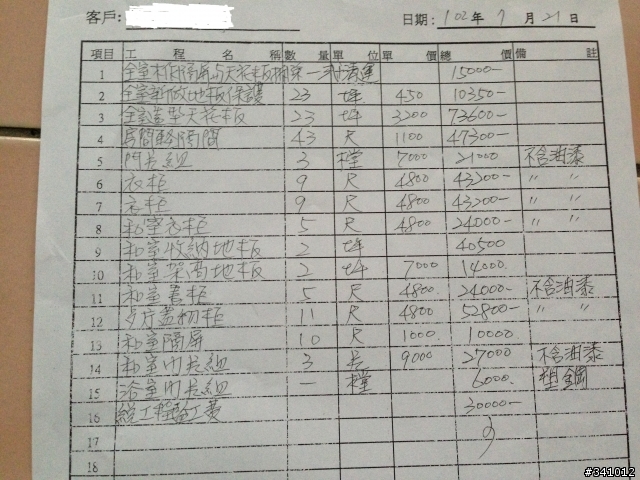 客戶: 日期: 102年 7月 21日
項目 工程名稱 數量 單位 單價 總價 備註
1 全室 隔屏与天花板 第一 清運 15000-
2 全室 地板保護 23 坪 450 10350-
3 全室造型天花板 23 坪 3200 73600-
4 房間 隔間 43 尺 1100 47300-
5 門片組 3 樘 7000 21000 不含油漆
6 衣柜 9 尺 4800 43200- 〃 〃
7 衣柜 9 尺 4800 43200- 〃 〃
8 和室衣柜 5 尺 4800 24000- 〃 〃
9 和室收納地板 2 坪 40500
10 和室架高地板 2 坪 7000 14000
11 和室書柜 5 尺 4800 24000- 不含油漆
12 柜 11 尺 4800 52800- 〃 〃
13 和室隔屏 10 尺 1000 10000
14 和室門片組 3 9000 27000 不含油漆
15 浴室門片組 一 樘 6000 塑鋼
16 工程 工費 30000-
17
18
#341012